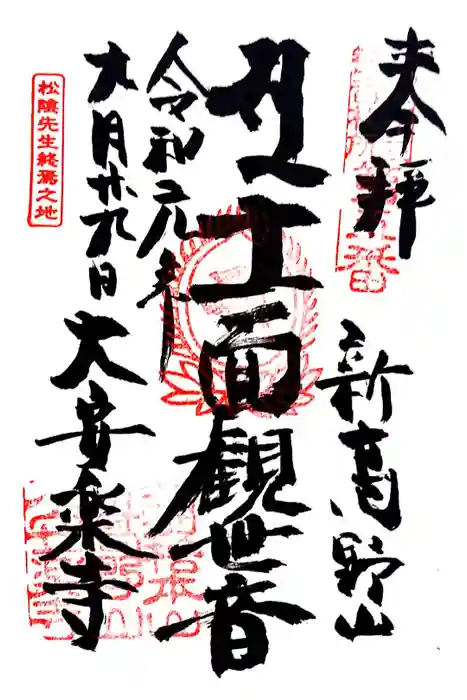 奉拝
新高野山
十一面観世音
令和元年
九月廿九日
大安楽寺
松陰先生終焉之地